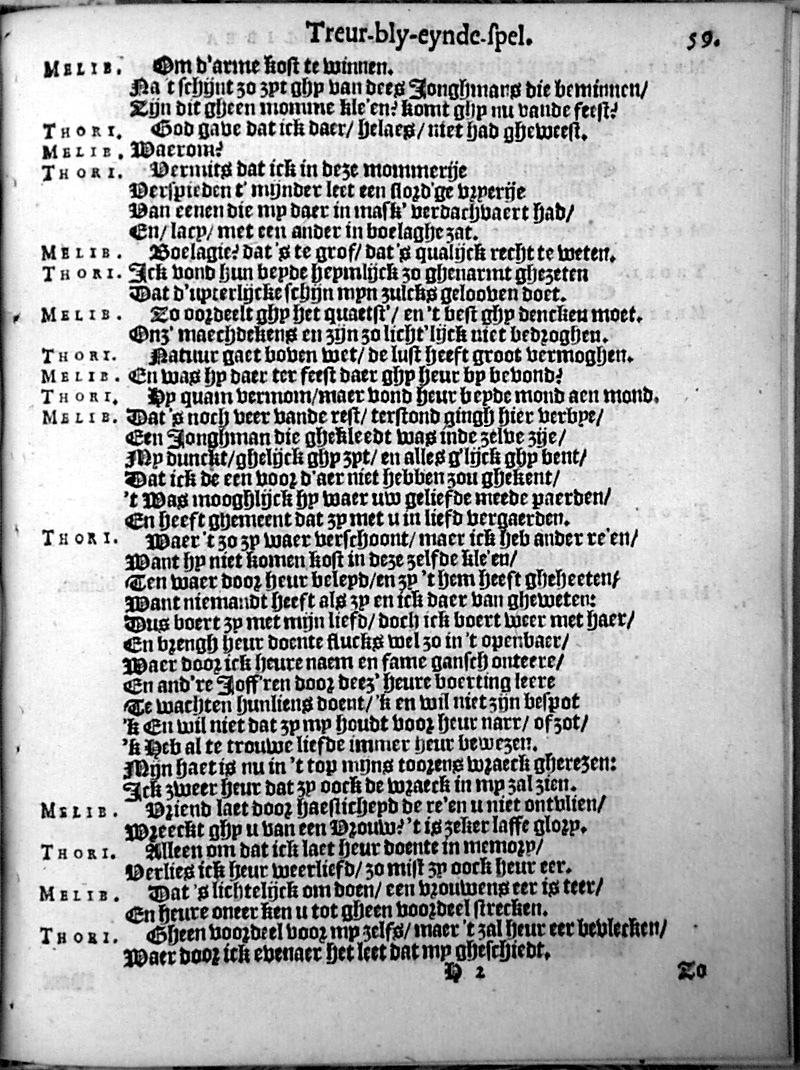 Treur-bly-eynde-spel. 59.
MELIB. Om d'arme kost te winnen.
Na 't schijnt zo zyt ghy van dees Jonghmans die beminnen/
Zijn dit gheen momme kle'en? komt ghy nu vande feest?
THORI. God gave dat ick daer/ helaes/ niet had gheweest.
MELIB. Waerom?
THORI. Vermits dat ick in deze mommerije
Verspieden t' mijnder leet een slord'ge vryerije
Van eenen die my daer in mask' verdachvaert had/
En/ lacy/ met een ander in boelaghe zat.
MELIB. Boelagie? dat 's te grof/ dat 's qualijck recht te weten.
THORI. Ick vond hun beyde heymlijck zo ghenarmt ghezeten
Dat d'uyterlijcke schijn myn zulcks gelooven doet.
MELIB. Zo oordeelt ghy het quaetst'/ en 't best ghy dencken moet.
Onz' maechdekens en zijn zo licht'lijck niet bedroghen.
THORI. Natuur gaet boven wet/ de lust heeft groot vermoghen.
MELIB. En was hy daer ter feest daer ghy heur by bevond?
THORI. Hy quam vermom/maer vond heur beyde mond aen mond.
MELIB. Dat 's noch veer vande rest/ terstond gingh hier verbye/
Een Jonghman die ghekleedt was inde zelve zije/
My dunckt/ghelijck ghy zyt/ en alles g'lijck ghy bent/
Dat ick de een voor d'aer niet hebben zou ghekent/
't Was mooghlijck hy waer uw geliefde meede paerden/
En heeft ghemeent dat zy met u in liefd vergaerden.
THORI. Waer 't zo zy waer verschoont/ maer ick heb ander re'en/
Want hy niet komen kost in deze zelfde kle'en/
Ten waer door heur beleyd/en zy 't hem heeft gheheeten/
Want niemandt heeft als zy en ick daer van gheweten:
Dus boert zy met mijn liefd/ doch ick boert weer met haer/
En brengh heur doente flucks wel zo in 't openbaer/
Waer door ick heure naem en fame gansch onteere/
En and're Joff'ren door deez' heure boerting leere
Te wachten hunliens doent/ 'k en wil niet zijn bespot
'k En wil niet dat zy my houdt voor heur narr/ of zot/
'k Heb al te trouwe liefde immer heur bewezen.
Mijn haet is nu in 't top mijns toorens wraeck gherezen:
Ick zweer heur dat zy oock de wraeck in my zal zien.
MELIB. Vriend laet door haestichepd de re'en u niet ontvlien/
Wreeckt ghy u van een Vrouw? 't is zeker laffe glory.
THORI. Alleen om dat ick laet heur doente in memory/
Verlies ick heur weerliefd/ zo mist zy oock heur eer.
MELIB. Dat 's lichtelijck om doen/ een vrouwens eer is teer/
En heure oneer ken u tot gheen voordeel strecken.
THORI. Gheen voordeel voor my zelfs/ maer 't zal heur eer bevlecken/
Waer door ick evenaer het leet dat my gheschiedt.
H 2 Zo